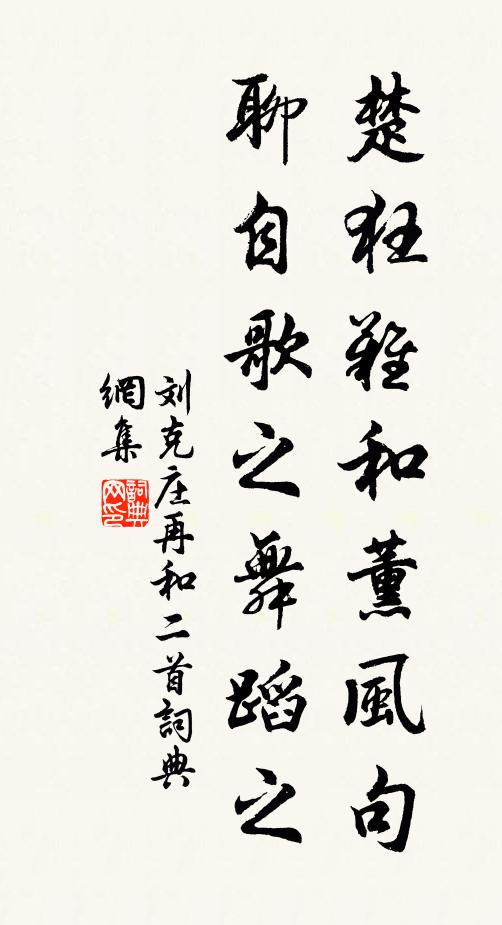 楚狂難和薰風句
聊自歌之舞蹈之
刘克庄再和二首詞典
網集
詞典
网印